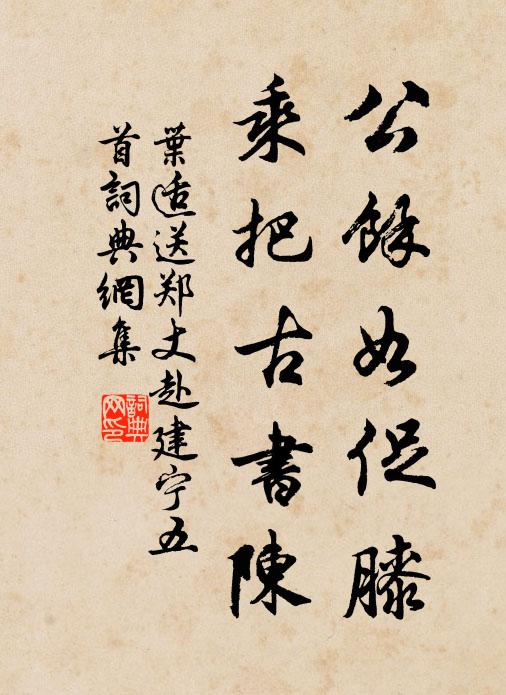 公餘如促膝
乘把古書陳
葉适送郑丈赴建宁五
首詞典網集
詞典
网印